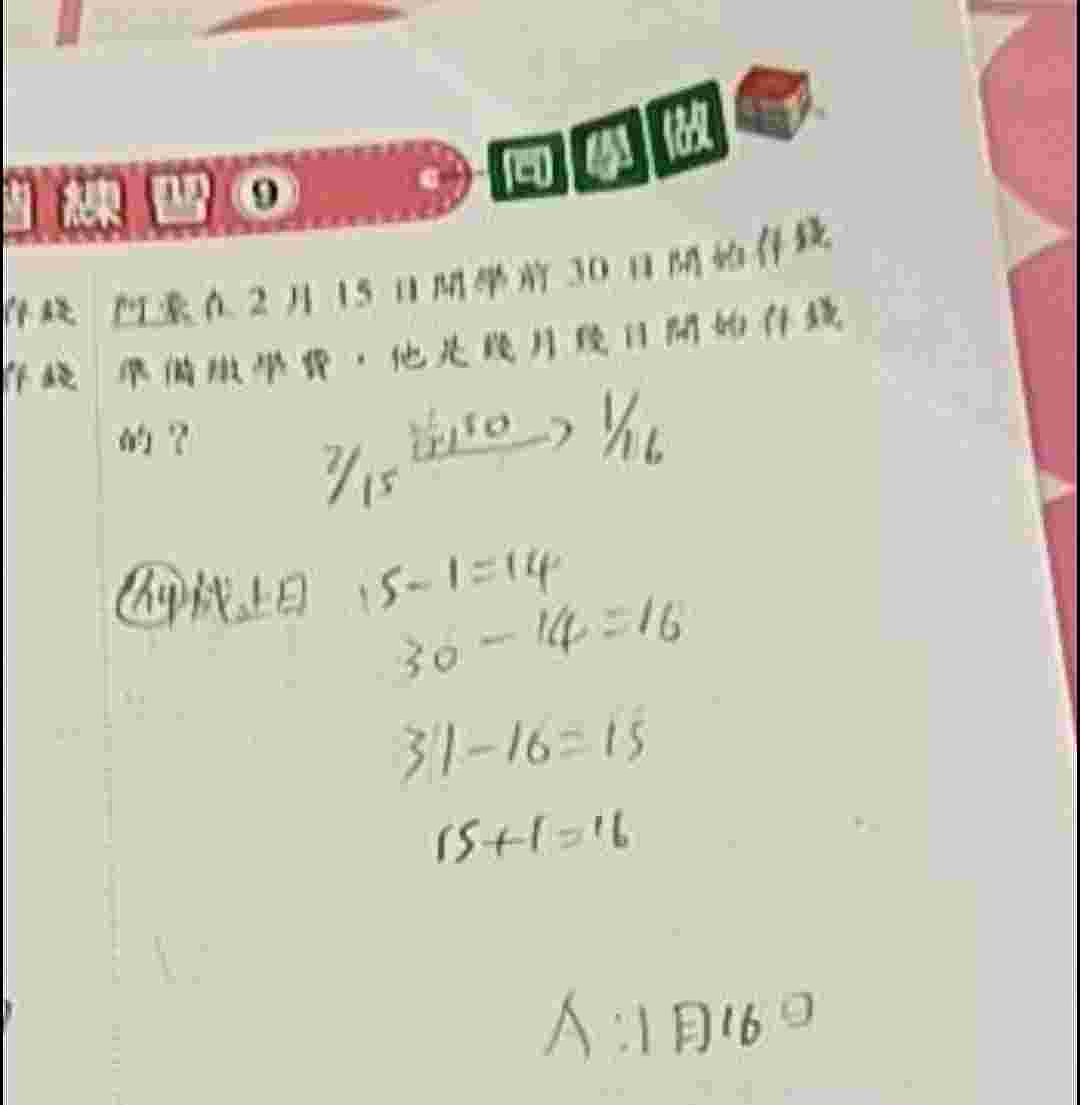 練習9 同學做
存錢
阿來在2月15日開學前30日開始存錢
存錢
準備繳學費,他是幾月幾日開始存錢
的?
2/15 前30 → 1/16
15-1=14
30-14=16
31-16=15
15+1=16
A:1月16日